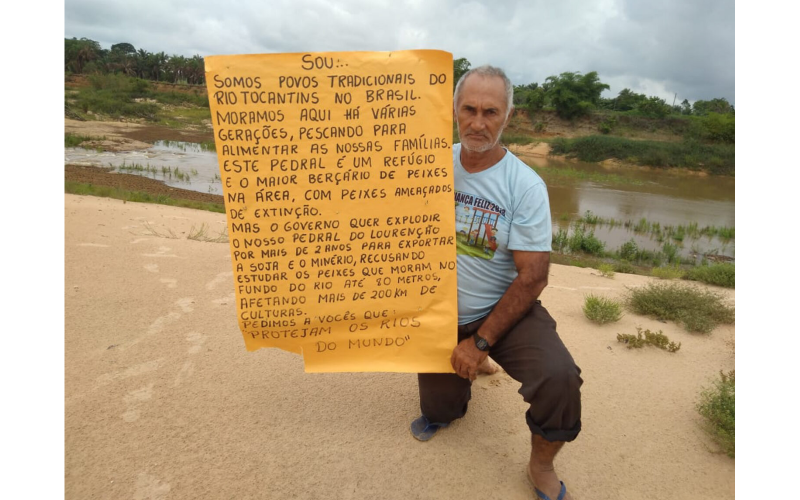 SOU:..
SOMOS POVOS TRADICIONAIS DO
RIO TOCANTINS NO BRASIL.
MORAMOS AQUI HÁ VÁRIAS
GERAÇÕES, PESCANDO PARA
ALIMENTAR AS NOSSAS FAMÍLIAS.
ESTE PEDRAL É UM REFÚGIO
E O MAIOR BERÇÁRIO DE PEIXES
NA ÁREA, COM PEIXES AMEAÇADOS
DE EXTINÇÃO.
MAS O GOVERNO QUER EXPLODIR
O NOSSO PEDRAL DO LOURENÇÃO
POR MAIS DE 2 ANOS PARA EXPORTAR
A SOJA E O MINÉRIO, RECUSANDO
ESTUDAR OS PEIXES QUE MORAM NO
FUNDO DO RIO ATÉ 80 METROS,
AFETANDO MAIS DE 200 KM DE
CULTURAS.
PEDIMOS A VOCÊS QUE:
"PROTEJAM OS RIOS
DO MUNDO"
IANÇA FELIZ